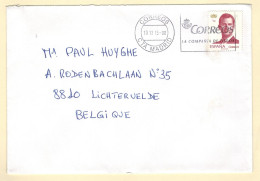 CORREOS
LA COMPAÑIA DE
ESPAÑA
CTA. MADRID
Mr PAUL HUYGHE
A. RODENBACHLAAN N°35
8810 LICHTERVELDE
BELGIQUE